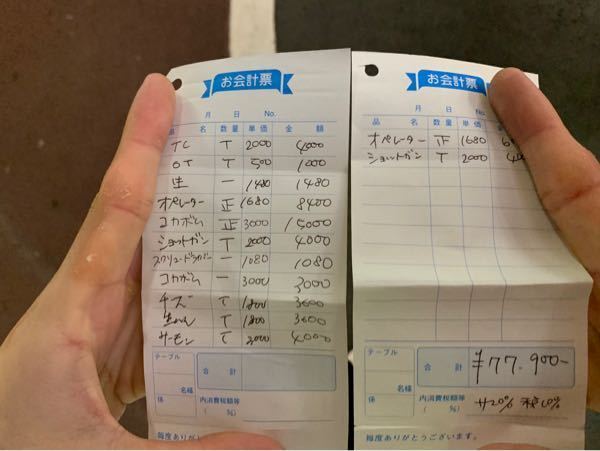 お会計票
月 日 No.
品 名 数量 単価 金 額
TC T 2000 4000
OT T 500 1000
生 一 1480 1480
オペレーター 正 1680 8400
コカボム 正 3000 15000
ショットガン T 2000 4000
スクリュードライバー 一 1080 1080
コカボム 一 3000 3000
チズー T 1800 3600
T 1800 3600
サーモン T 2000 4000
テーブル
合 計
名様
係
内消費税額等
( %)
毎度ありが
お会計票
月 日
品 名 数量 単価 金
オペレーター 正 1680
ショットガン T 2000
テーブル
合 計 ¥77.900-
名様
係
内消費税額等
( %)
サ20% 税10%
毎度ありがとうございます。